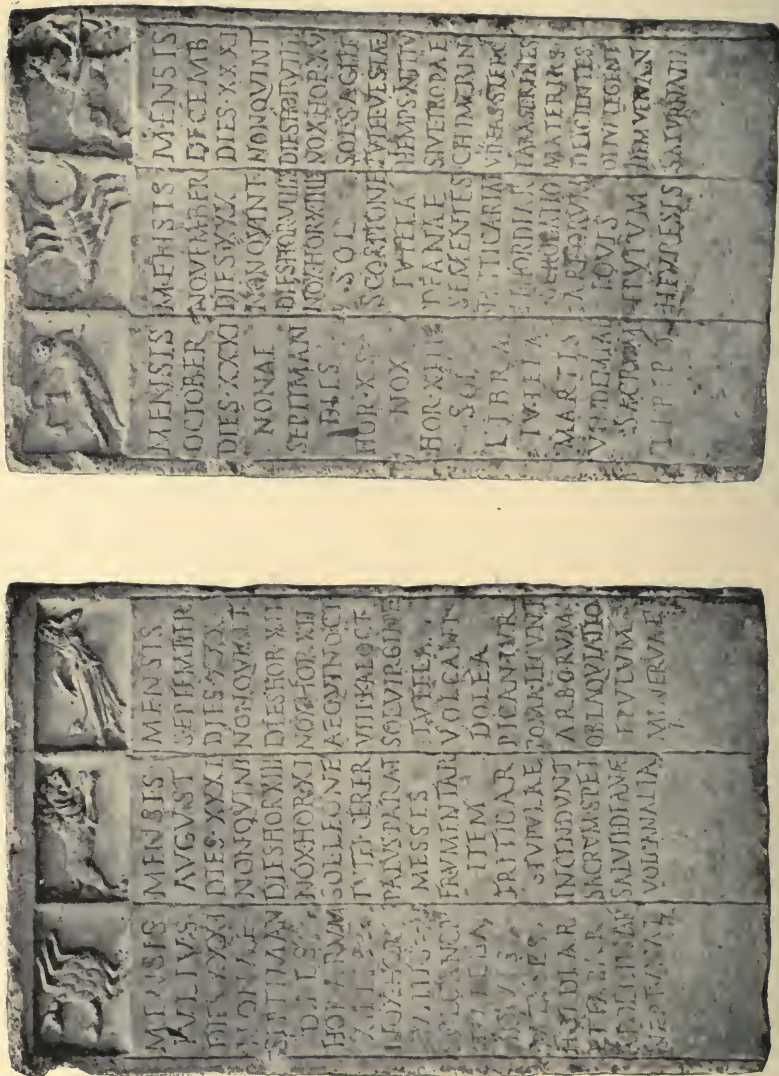 MENSIS
IVLIVS
DIES·XXXI
NONAE
SEPTIMAN
DIES
HORARVM
NOX·HOR
SOL CANCR
TVTELA
IOVIS
MESSES
HORDIAR
ET FABAR
APOLLINAR
NEPTVNAL
MENSIS
AVGVST
DIES·XXXI
NON·QVINT
DIES HOR XIII
NOX·HOR·XI
SOL LEONE
TVTEL CERER
PALVS PARAT
MESSES
FRVMENTAR
ITEM
TRITICAR
STVPVLAE
INCENDVNT
SACRVM SPEI
SALVTI DIANAE
VOLCANALIA
MENSIS
SEPTEMBER
DIES·XXX
NON·QVINT
DIES HOR XII
NOX·HOR·XII
AEQVINOCT
VIII KAL OCT
SOL VIRGINE
TVTELA
VOLCANI
DOLEA
PICANTVR
POMA LEGVNT
ARBORVM
OBLAQVIATIO
EPVLVM
MINERVAE
MENSIS
OCTOBER
DIES·XXXI
NONAE
SEPTIMAN
DIES
HOR·X
NOX
HOR·XIII
SOL
LIBRA
TVTELA
MARTIS
VINDEMIAE
SACRVM
LIBERO
MENSIS
NOVEMBER
DIES·XXX
NON·QVINT
DIES HOR VIIII
NOX·HOR XIIII
SOL
SCORPIONE
TVTELA
DEANAE
SEMENTES
TRITICARIAE
ET HORDIAR
ARBORVM
IOVIS
EPVLVM
HEVRESIS
MENSIS
DECEMB
DIES·XXXI
NON QVINT
DIES HOR VIIII
NOX HOR XV
SOL SAGIT
TVTEL VESTAE
HIEMPS INITIV
SIVE TROPAE
CHIMERIN
VINEAS STERC
FABA SERENTES
MATERIAS
DEICIENTES
OLIVA LEGENT
ITEM VENAN
SATVRNALIA